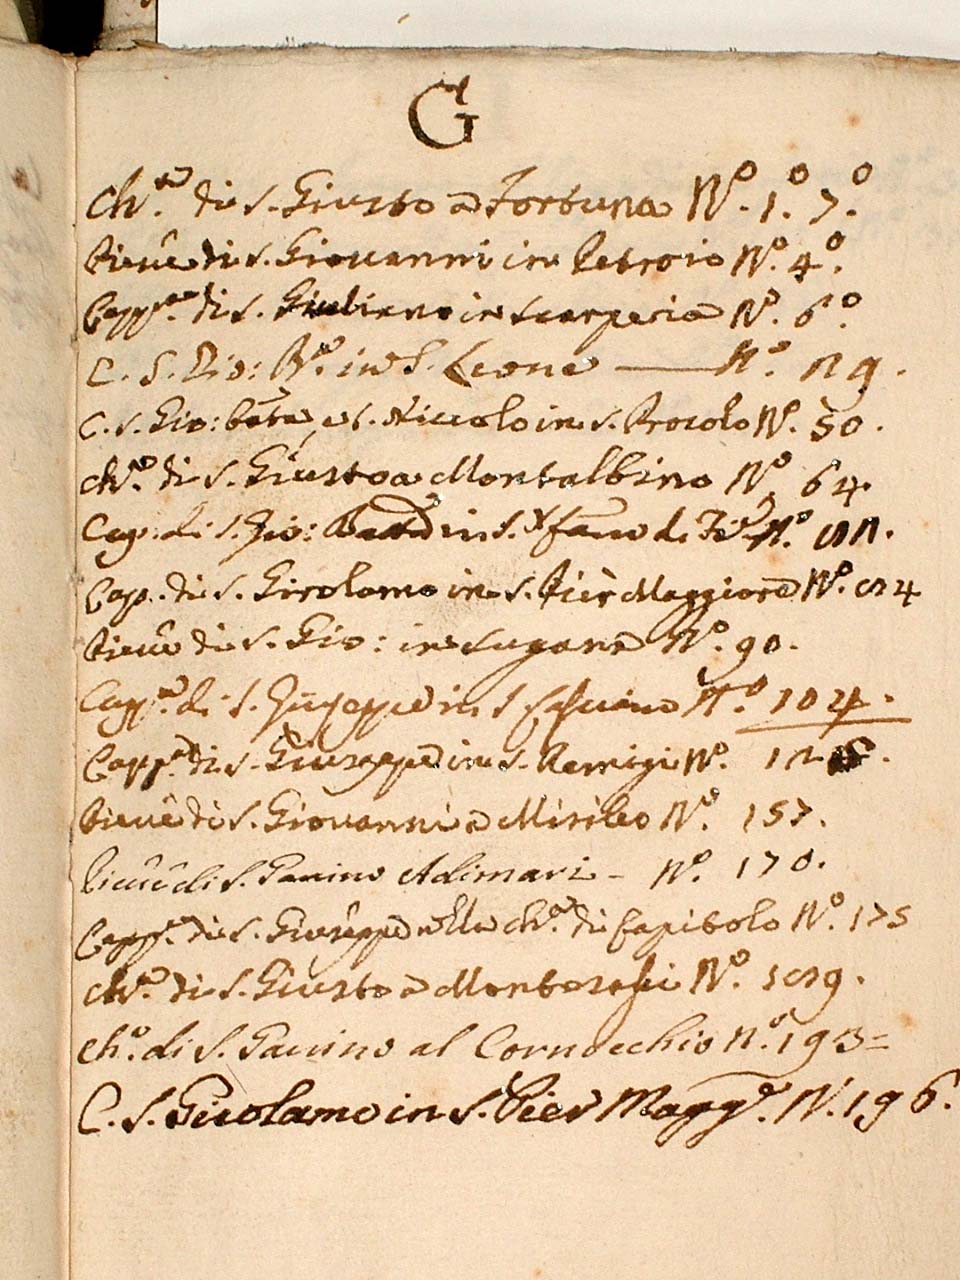 G
Ch.ª di S. Giusto a Fortuna Nº. 1º. 7º.
Pieve di S. Giovanni in Petroio Nº. 4º.
Capp.ª di S. Giuliano in Scarperia Nº. 6º.
C. S. Gio: Bª in S. Leone Nº. 29.
C. S. Gio: Batta e S. Niccolo in S. Procolo Nº. 50.
Ch.ª di S. Giusto a Montalbino Nº 64.
Cap. di S. Gio: Batta in S. Stefano di Nº. 82.
Capp. di S. Girolamo in S. Pier Maggiore Nº. 84
Pieve di S. Gio: in Sugana Nº. 90.
Capp.ª di S. Giuseppe in S. Nº 104.
Capp.ª di S. Giuseppe in S. Remigi Nº. 128.
Pieve di S. Giovanni a Nº. 157.
Pieve di S. Gavino Adimari - Nº. 170.
Capp.ª di S. Giuseppe nella Ch.ª di Capitolo Nº. 175
Ch.ª di S. Giusto a Nº. 189.
Ch.ª di S. Gavino al Cornocchio Nº. 193=
C. S. Girolamo in S. Pier Magg.e N. 196.